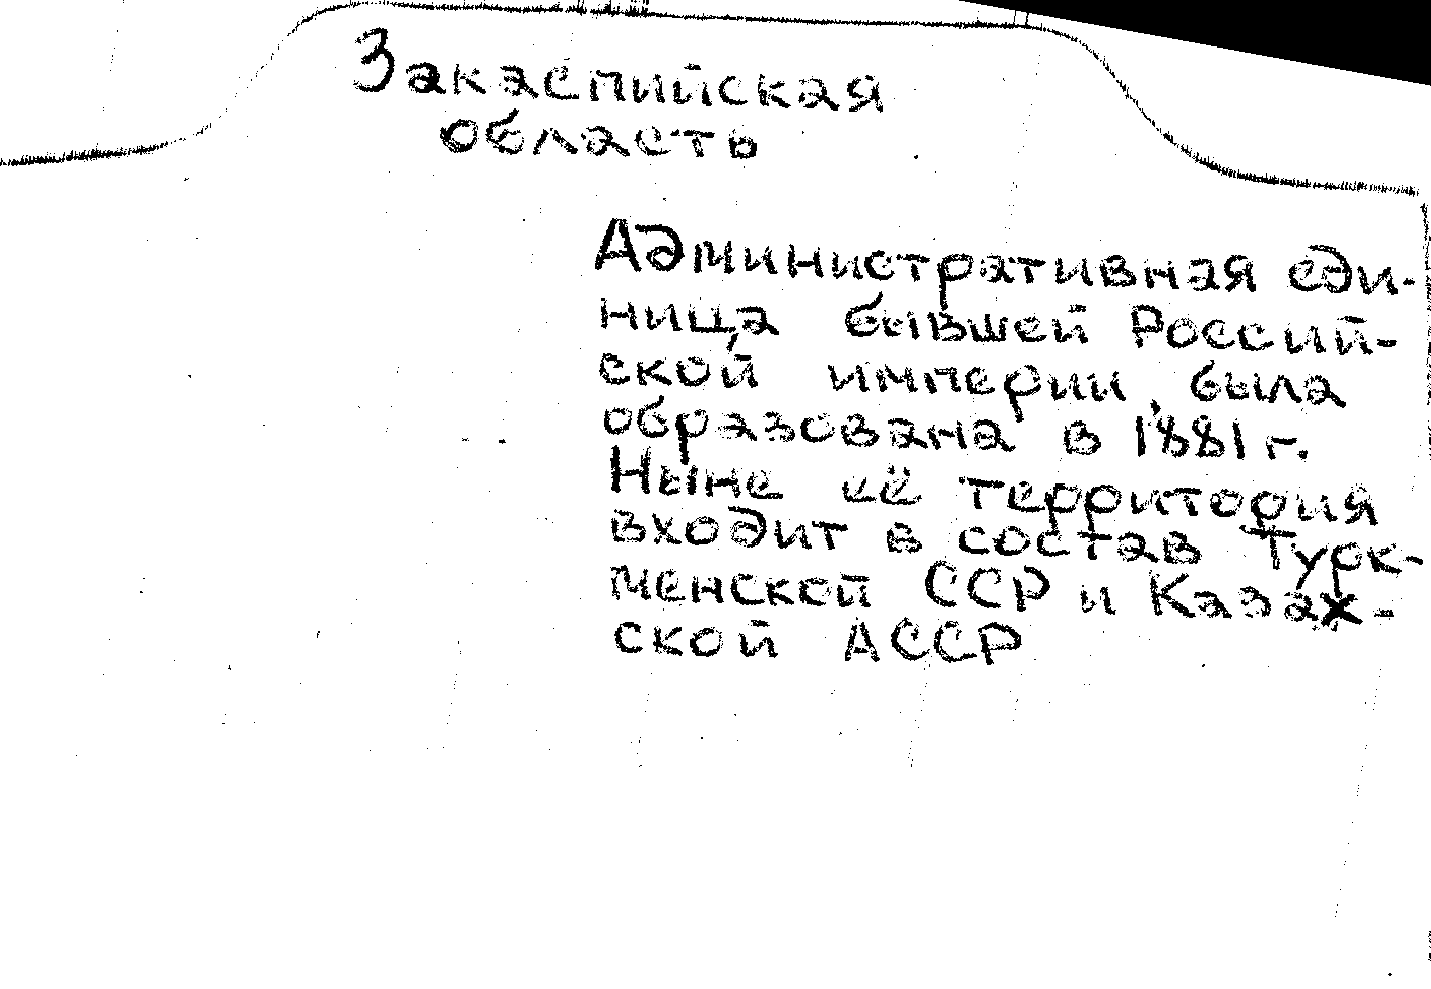 Закаспийская
область
Административная еди-
ница бывшей Россий-
ской империи, была
образована в 1881 г.
Ныне её территория
входит в состав Турк-
менской ССР и Казах-
ской АССР